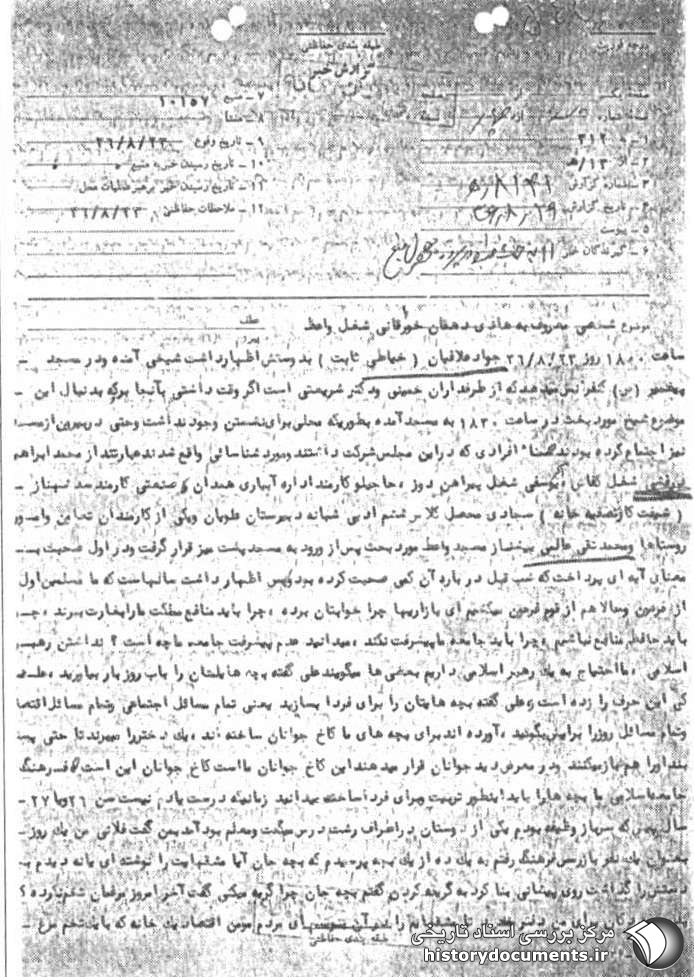 طبقه بندی حفاظتی
گزارش خبر
۷ - منبع ۱۰۱۵۷
۸ - منشا
۱ - به ۳۱۲
۹ - تاریخ وقوع ۳۶/۸/۲۳
۲ - از ۱۳/ه
۱۰ - تاریخ رسیدن خبر به منبع
۳ - شماره گزارش
۱۱ - تاریخ رسیدن خبر به رهبر عملیات محل
۴ - تاریخ گزارش
۱۲ - ملاحظات حفاظتی ۳۶/۸/۲۳
۵ - پیوست
۶ - گیرندگان خبر
موضوع شخصی معروف به هادی دهقان خورقانی شغل واعظ
عطف
پیرو
ساعت ۱۸۰۰ روز ۳۶/۸/۲۳ جواد علاقبان ( خیاطی ثابت ) بدوستش اظهار داشت شیخی آمده و در مسجد -
پیغمبر (ص) کنفرانس میدهد که از طرفداران خمینی و دکتر شریعتی است اگر وقت داشتی بآنجا برو که بدنبال این -
موضوع شیخ مورد بحث در ساعت ۱۸۳۰ به مسجد آمده بطوریکه محلی برای نشستن وجود نداشت و حتی در بیرون از مسجد
نیز اجتماع کرده بودند ضمنا افرادی که در این مجلس شرکت داشتند و مورد شناسائی واقع شدند عبارتند از محمد ابراهیم
شغل کفاش و یوسفی شغل پیراهن دوز ، حاجیلو کارمند اداره آبیاری همدان و صنعتی کارمند سد شهناز -
( شیفت کار تصفیه خانه ) سجادی محصل کلاس ششم ادبی شبانه دبیرستان علویان و یکی از کارمندان تعاون و امور
روستاها و محمد تقی عالمی پیشنماز مسجد واعظ مورد بحث پس از ورود به مسجد پشت میز قرار گرفت و در اول صحبت به -
معنای آیه ای پرداخت که شب قبل در باره آن کمی صحبت کرده بود و سپس اظهار داشت سالهاست که ما مسلمین اول
از فرعون و حالا هم از قوم فرعون میکشیم ای بازاریها چرا خوابتان برده ، چرا باید منافع مملکت ما را بغارت ببرند ، چرا
باید حافظ منافع نباشیم ، چرا باید جامعه ما پیشرفت نکند ، میدانید عدم پیشرفت جامعه ما چه است ؟ نداشتن رهبر
اسلامی ، ما احتیاج به یک رهبر اسلامی داریم بعضی ها میگویند علی گفته بچه هایتان را باب روز بار بیاورید ،
کی این حرف را زده است علی گفته بچه هایتان را برای فردا بسازید یعنی تمام مسائل اجتماعی و تمام مسائل اقتصادی
و تمام مسائل روز را برایش بگوئید ، آورده اند برای بچه های ما کاخ جوانان ساخته اند ، یک دختر را میبرند تا حتی
را هم باز میکنند و در معرض دید جوانان قرار میدهند این کاخ جوانان ما است کاخ جوانان این است که فرهنگ
جامعه اسلامی ما بچه ها را باید اینطور تربیت و برای فردا ساخته میدانید زمانیکه درست یادم نیست سن ۲۶ و یا ۲۷ -
سال پیش که سرباز وظیفه بودم یکی از دوستان در اطراف رشت درس میگفت و معلم بود آمد بمن گفت فلانی من یک روز -
بعنوان یک نفر بازرس فرهنگ رفتم به یک ده از یک بچه پرسیدم که بچه جان آیا مشقهایت را نوشته ای یا نه دیدم
دستش را گذاشت روی پیشانی بنا کرد به گریه کردن گفتم بچه جان چرا گریه میکنی گفت آخر امروز مرغمان تخم نکرده ؟
برای من دفتر مشقهایم را ای مردم مومن اقتصاد یک خانه که با یک تخم مرغ -
طبقه بندی حفاظتی
مرکز بررسی اسناد تاریخی
historydocuments.ir